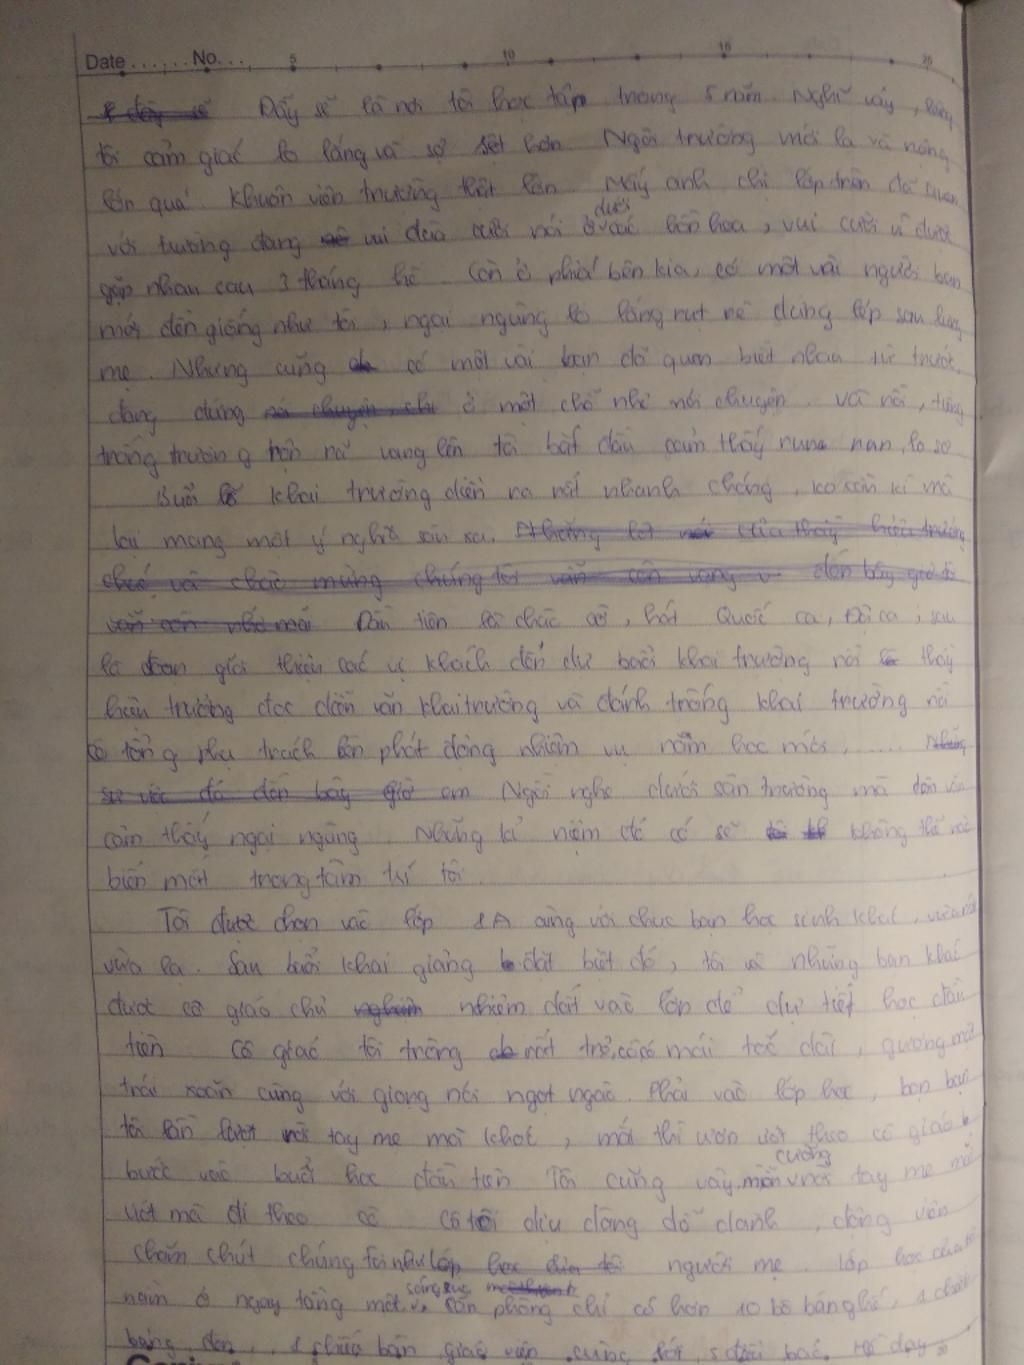 Date ...... No. ... 5 10 15 20
Đấy sẽ là nơi tôi học tập trong 5 năm. Nghĩ vậy, lòng
tôi cảm giác lo lắng và sợ sệt hơn. Ngôi trường mới lạ và nó
lớn quá. Khuôn viên trường thật lớn. Mấy anh chị lớp trên đã quen
với trường đang vui đùa cười nói ở dưới các bồn hoa, vui cười vì được
gặp nhau sau 3 tháng hè. Còn ở phía bên kia, có một vài người bạn
mới đến giống như tôi, ngại ngùng lo lắng rụt rè đứng lấp sau lưng
mẹ. Nhưng cũng có một vài bạn đã quen biết nhau từ trước,
đang đứng nói chuyện ở một chỗ nhỏ nói chuyện. Và rồi, tiếng
trống trường rộn rã vang lên tôi bắt đầu cảm thấy run, lo sợ
Buổi lễ khai trường diễn ra rất nhanh chóng, mà
lại mang một ý nghĩa sâu xa. của thầy hiệu trưởng
chúc mừng chúng tôi vẫn còn đến bây giờ
Đầu tiên là chào cờ, hát Quốc ca, Đội ca, sau
là đoạn giới thiệu các vị khách đến dự buổi khai trường rồi thầy
hiệu trưởng đọc diễn văn khai trường và đánh trống khai trường rồi
cô tổng phụ trách lên phát động nhiệm vụ năm học mới, ...... Những
đó đến bây giờ em Ngồi nghe dưới sân trường mà vẫn
cảm thấy ngại ngùng. Những kỉ niệm đó có sẽ không thể nào
biến mất trong tâm trí tôi.
Tôi được chọn vào lớp 1A cùng với chục bạn học sinh khác, vừa
vừa lạ. Sau buổi khai giảng đặt biệt đó, tôi và những bạn khác
được cô giáo chủ nghiệm nhiệm dắt vào lớp để dự tiết học đầu
tiên. Cô giáo tôi trông rất trẻ, có mái tóc dài, gương mặt
trái xoan cùng với giọng nói ngọt ngào. Phải vào lớp học, bọn bạn
tôi lần lượt rời tay mẹ mà khóc, mắt thì ươn ướt theo cô giáo
bước vào buổi học đầu tiên. Tôi cũng vậy, cuống rời tay mẹ mắt
ướt mà đi theo cô. Cô tôi dịu dàng dỗ dành, động viên
chăm chút chúng tôi như lớp học của tôi người mẹ. Lớp học của tôi
nằm ở ngay tầng một, căn phòng chỉ có hơn 10 bộ bàn ghế, 1 chiếc
bảng đen, 1 chiếc bàn giáo viên cùng với 5 điều bác Hồ dạy